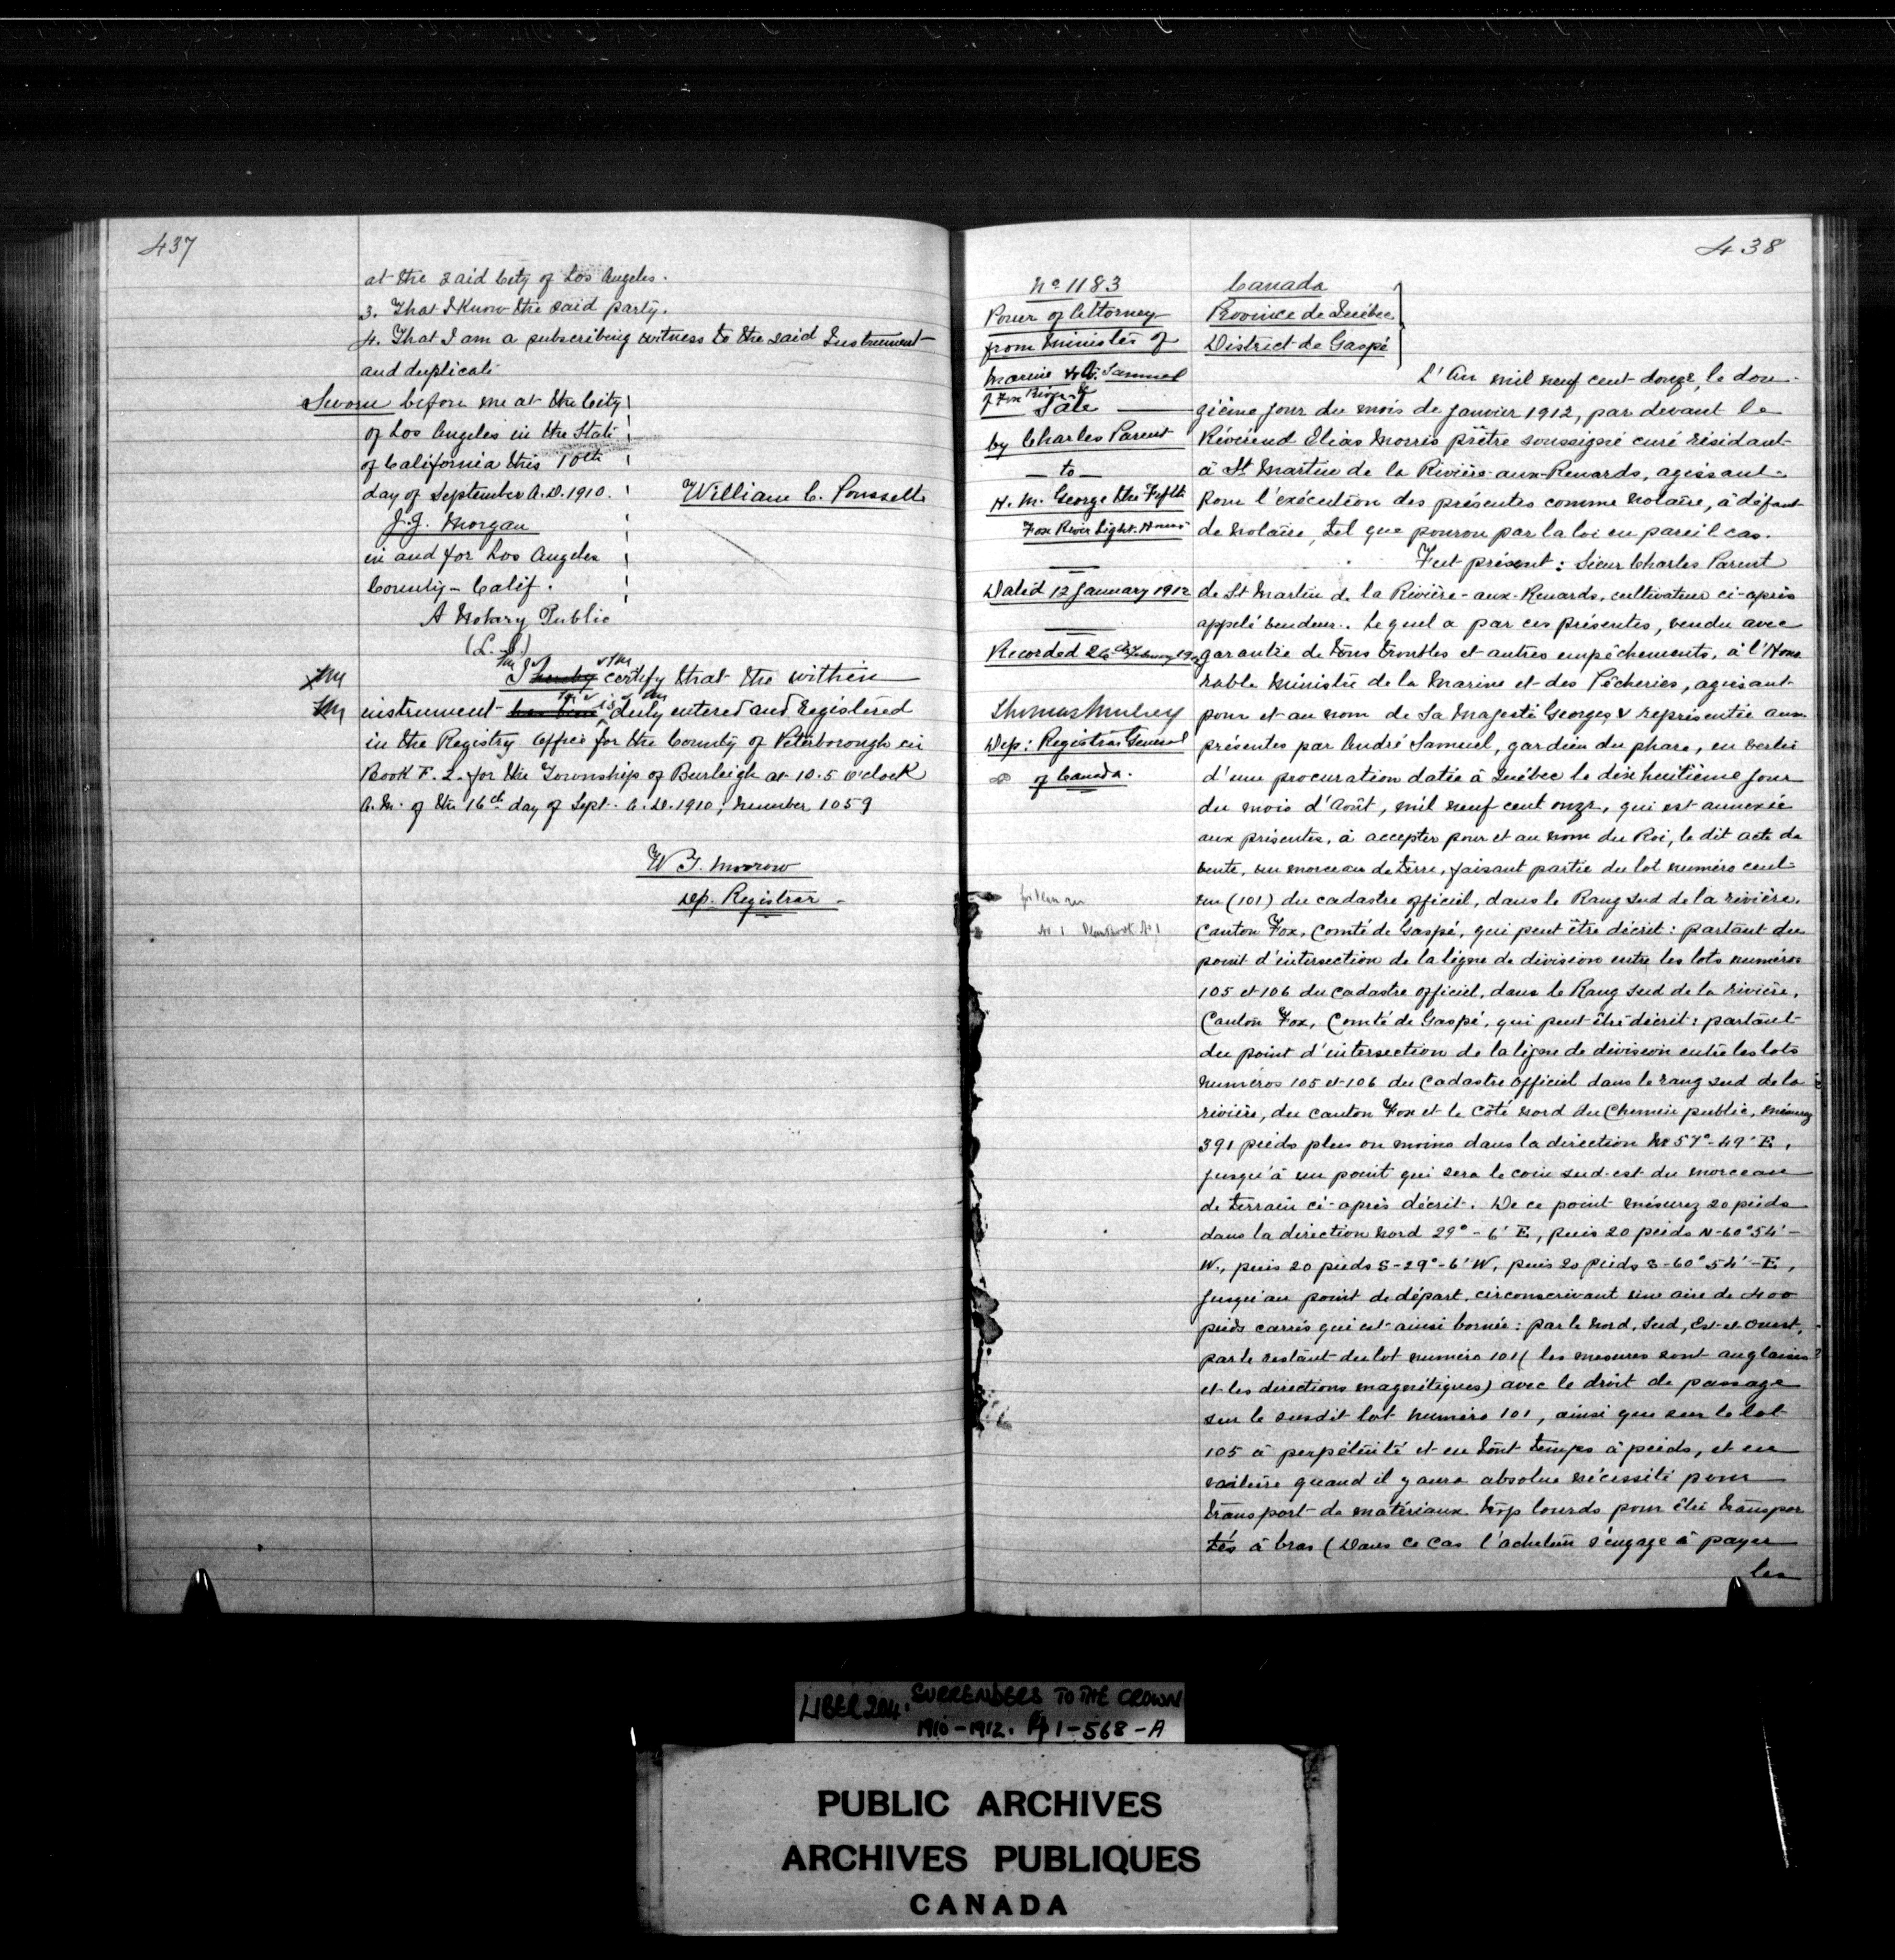 437
at the said City of Los Angeles.
3. That I know the said party.
4. That I am a subscribing witness to the said Instrument
and duplicate
Sworn before me at the City
of Los Angeles in the State
of California this 10th
day of September A.D. 1910.
William C. Pousette
J.J. Morgan
in and for Los Angeles
County - Calif.
A Notary Public
(L.S.)
I hereby certify that the within
instrument has been is duly entered and Registered
in the Registry Office for the County of Peterborough in
Book F. 2. for the Township of Burleigh at 10.5 o'clock
A.M. of the 16th day of Sept. A.D. 1910, number 1059
W J. Morrow
Dep. Registrar -
438
No 1183
Power of Attorney
from Minister of
Marine to A. Samuel
of Fox River &
Sale
by Charles Parent
- to -
H. M. George the Fifth
Fox River Light-House
Dated 12 January 1912
Recorded 26th February 1912
Thomas Mulvey
Dep: Registrar General
of Canada.
for Plan see
No 1 Plan Book No 1
Canada
Province de Québec
District de Gaspé
L'An mil neuf cent douze, le dou-
zième jour du mois de janvier 1912, par devant le
Révérend Elias Morris prêtre soussigné curé résidant
à St Martin de la Rivière-aux-Renards, agissant
pour l'exécution des présentes comme notaire, à défaut
de notaire, tel que pourvu par la loi en pareil cas.
Fut présent: Sieur Charles Parent
de St Martin de la Rivière-aux-Renards, cultivateur ci-après
appelé vendeur. Lequel a par ces présentes, vendu avec
garantie de tous troubles et autres empêchements, à l'Hono
rable Ministre de la Marine et des Pêcheries, agissant
pour et au nom de Sa Majesté Georges V représentée aux
présentes par André Samuel, gardien du phare, en vertu
d'une procuration datée à Québec le dix huitième jour
du mois d'Août, mil neuf cent onze, qui est annexée
aux présentes, à accepter pour et au nom du Roi, le dit acte de
vente, un morceau de terre, faisant partie du lot numéro cent
un (101) du cadastre officiel, dans le Rang sud de la rivière,
Canton Fox, Comté de Gaspé, qui peut être décrit: partant du
point d'intersection de la ligne de division entre les lots numéros
105 et 106 du cadastre officiel, dans le Rang sud de la rivière,
Canton Fox, Comté de Gaspé, qui peut être décrit: partant
du point d'intersection de la ligne de division entre les lots
numéros 105 et 106 du Cadastre officiel dans le rang sud de la
rivière, du canton Fox et le côté nord du Chemin public, mésurez
391 pieds plus ou moins dans la direction N 57° - 49' E,
jusqu'à un point qui sera le coin sud-est du morceau
de terrain ci-après décrit. De ce point mésurez 20 pieds
dans la direction nord 29° - 6' E, puis 20 pieds N-60° 54' -
W., puis 20 pieds S-29°-6' W, puis 20 pieds S-60° 54' - E,
jusqu'au point de départ, circonscrivant une aire de 400
pieds carrés qui est ainsi bornée: par le Nord, Sud, Est et Ouest,
par le restant du lot numéro 101 (les mesures sont anglaises
et les directions magnétiques) avec le droit de passage
sur le susdit lot numéro 101, ainsi que sur le lot
105 à perpétuité et en tout temps à pieds, et en
voiture quand il y aura absolue nécessité pour
transport de matériaux trop lourds pour être transpor
tés à bras (Dans ce cas l'acheteur s'engage à payer
les
LIBER 204. SURRENDERS TO THE CROWN
1910-1912. Pp 1-568-A
PUBLIC ARCHIVES
ARCHIVES PUBLIQUES
CANADA